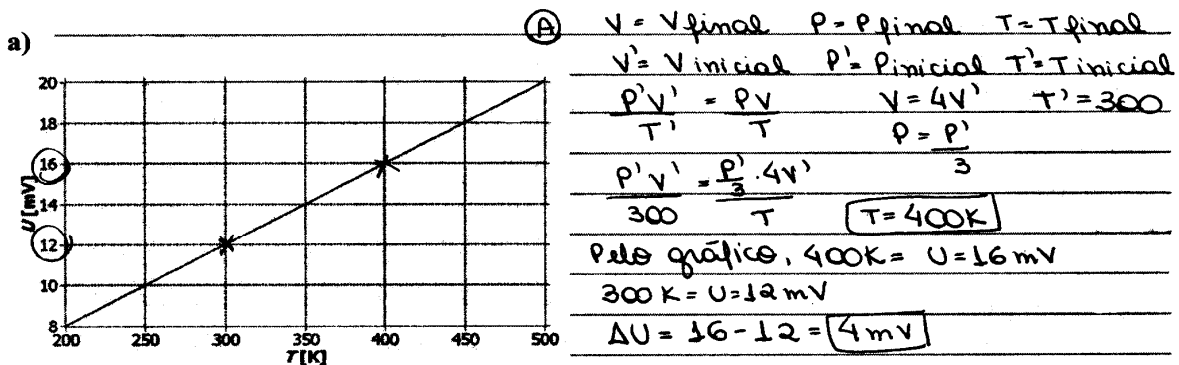 a)
20
18
16
14
12
10
8
U[mV]
200 250 300 350 400 450 500
T[K]
A V = Vfinal P = Pfinal T = Tfinal
V' = Vinicial P' = Pinicial T' = Tinicial
P'V' / T' = PV / T V = 4V' T' = 300
P = P' / 3
P'V' / 300 = P'/3 . 4V' / T T = 400K
Pelo gráfico, 400K = U = 16 mV
300 K = U = 12 mV
ΔU = 16 - 12 = 4 mV